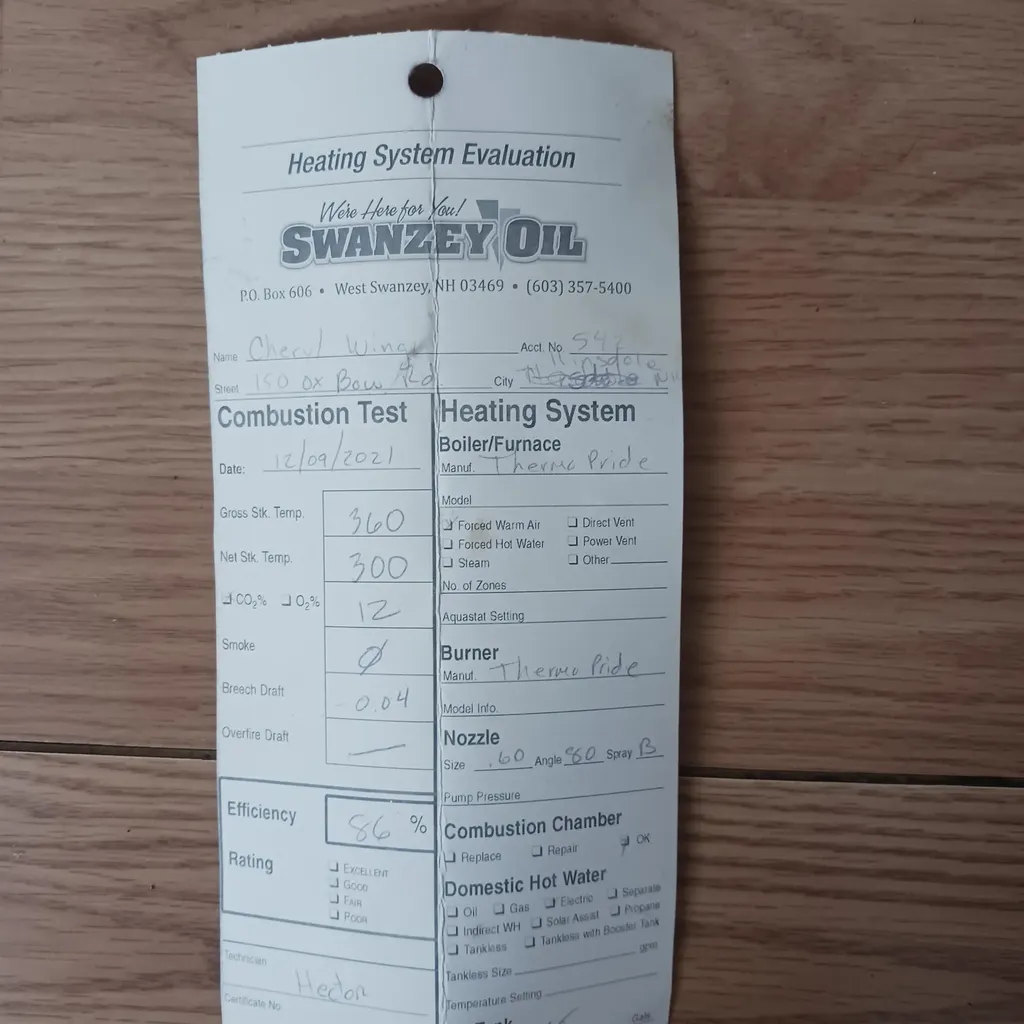 Heating System Evaluation
We're Here for You!
SWANZEY OIL
P.O. Box 606 • West Swanzey, NH 03469 • (603) 357-5400
Name Cheryl Wing Acct. No. 54
Hinsdale
Street 150 Ox Bow Rd City NH
Combustion Test
Date: 12/09/2021
Gross Stk. Temp. 360
Net Stk. Temp. 300
CO2% O2% 12
Smoke Ø
Breech Draft 0.04
Overfire Draft —
Efficiency 86 %
Rating
EXCELLENT
GOOD
FAIR
POOR
Technician
Hector
Certificate No.
Heating System
Boiler/Furnace
Manuf. Thermo Pride
Model
Forced Warm Air Direct Vent
Forced Hot Water Power Vent
Steam Other
No. of Zones
Aquastat Setting
Burner
Manuf. Thermo Pride
Model Info.
Nozzle
Size .60 Angle 80 Spray B
Pump Pressure
Combustion Chamber
Replace Repair OK
Domestic Hot Water
Oil Gas Electric Separate
Indirect WH Solar Assist Propane
Tankless Tankless with Booster Tank
Tankless Size gpm
Temperature Setting
Tank Gals